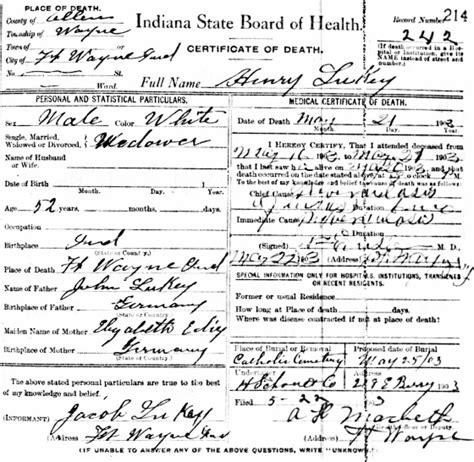 PLACE OF DEATH.
County of Allen
Township of Wayne
Town of
City of Ft Wayne Ind
No. St.
Ward.
Indiana State Board of Health.
CERTIFICATE OF DEATH.
Record Number 214
242
(If death occurred in a Hospital or Institution, give its NAME instead of street and number.)
Full Name Henry Lukey
PERSONAL AND STATISTICAL PARTICULARS.
Sex Male Color White
Single, Married, Widowed or Divorced, Widower
Name of Husband or Wife.
Date of Birth
Month. Day. Year.
Age 52 years, months, days.
Occupation
Birthplace Ind
(State or County.)
Place of Death Ft Wayne Ind
Name of Father John Lukey
Birthplace of Father Germany
(State or County.)
Maiden Name of Mother Elizabeth
Birthplace of Mother Germany
(State or County.)
The above stated personal particulars are true to the best of my knowledge and belief.
(INFORMANT) Jacob Lukey
(Address Ft Wayne Ind
MEDICAL CERTIFICATE OF DEATH.
Date of Death May 21 1903
Month. Day. Year.
I HEREBY CERTIFY, That I attended deceased from
May 16 1903, to May 21 1903
that I last saw h alive on May 1903
and that death occurred on the date stated above, at o'clock M.
To the best of my knowledge and belief the cause of death was as follows:
Chief Cause
Duration
Immediate Cause
Duration
(Signed) M. D.
May 22 1903 (Address)
SPECIAL INFORMATION ONLY FOR HOSPITALS, INSTITUTIONS, TRANSIENTS OR RECENT RESIDENTS.
Former or usual Residence
How long at Place of Death days
Where was disease contracted if not at place of death?
Place of Burial or Removal Proposed Date of Burial
Catholic Cemetery May 25/03
Undertaker Address
H Schone & Co 219 E Berry 1903
Filed 5-22 3
(Address Ft Wayne
(IF UNABLE TO ANSWER ANY OF THE ABOVE QUESTIONS, WRITE "UNKNOWN.")